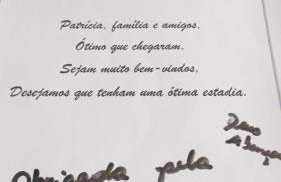 Patrícia, família e amigos.
Ótimo que chegaram.
Sejam muito bem-vindos.
Desejamos que tenham uma ótima estadia.
Obrigada pela